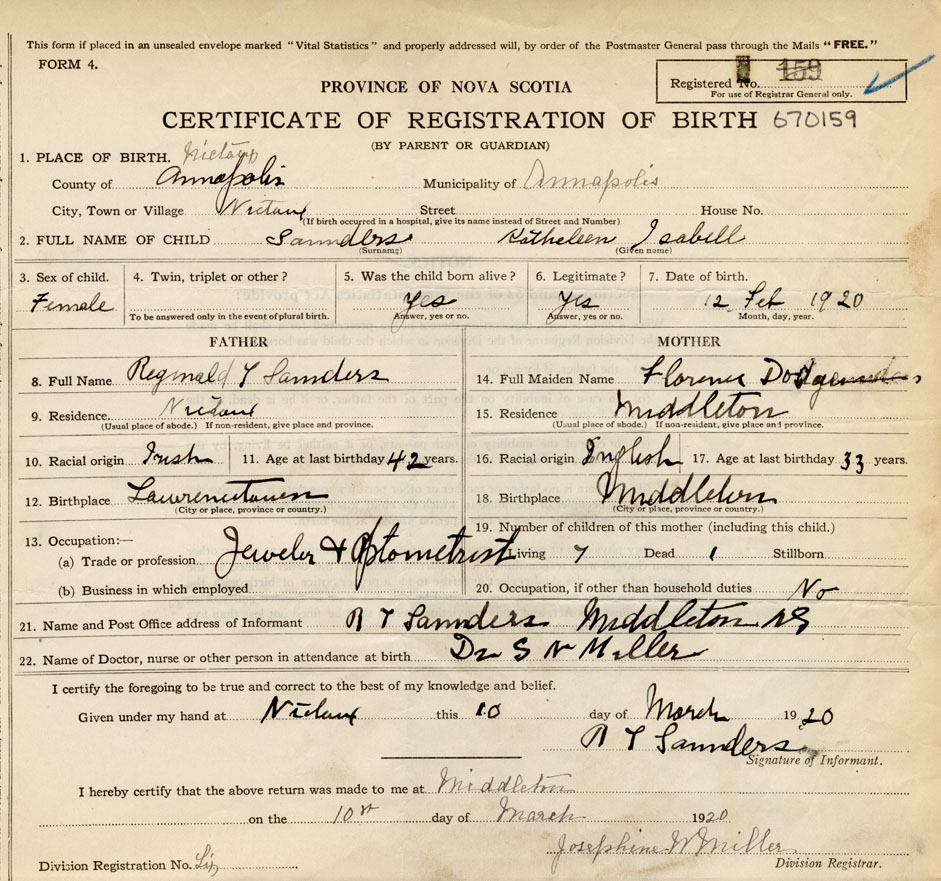 This form if placed in an unsealed envelope marked "Vital Statistics" and properly addressed will, by order of the Postmaster General pass through the Mails "FREE."
FORM 4.
Registered No. 159
For use of Registrar General only.
PROVINCE OF NOVA SCOTIA
CERTIFICATE OF REGISTRATION OF BIRTH 670159
(BY PARENT OR GUARDIAN)
1. PLACE OF BIRTH. Nictaux
County of Annapolis Municipality of Annapolis
City, Town or Village Nictaux Street House No.
(If birth occurred in a hospital, give its name instead of Street and Number)
2. FULL NAME OF CHILD Saunders Katheleen Isabell
(Surname) (Given name)
3. Sex of child. 4. Twin, triplet or other? 5. Was the child born alive? 6. Legitimate? 7. Date of birth.
Female Yes Yes 12 Feb 1920
To be answered only in the event of plural birth. Answer, yes or no. Answer, yes or no. Month, day, year.
FATHER MOTHER
8. Full Name Reginald T Saunders 14. Full Maiden Name Florence
9. Residence. Nictaux 15. Residence Middleton
(Usual place of abode.) If non-resident, give place and province. (Usual place of abode.) If non-resident, give place and province.
10. Racial origin Irish 11. Age at last birthday 42 years. 16. Racial origin English 17. Age at last birthday 33 years.
12. Birthplace Lawrencetown 18. Birthplace Middleton
(City or place, province or country.) (City or place, province or country.)
13. Occupation:— 19. Number of children of this mother (including this child.)
(a) Trade or profession Jeweler & Optometrist Living 7 Dead 1 Stillborn
(b) Business in which employed 20. Occupation, if other than household duties No
21. Name and Post Office address of Informant R T Saunders Middleton NS
22. Name of Doctor, nurse or other person in attendance at birth Dr S N Miller
I certify the foregoing to be true and correct to the best of my knowledge and belief.
Given under my hand at Nictaux this 10 day of March 1920
R T Saunders
Signature of Informant.
I hereby certify that the above return was made to me at Middleton
on the 10th day of March 1920
Josephine W Miller
Division Registration No. Six Division Registrar.